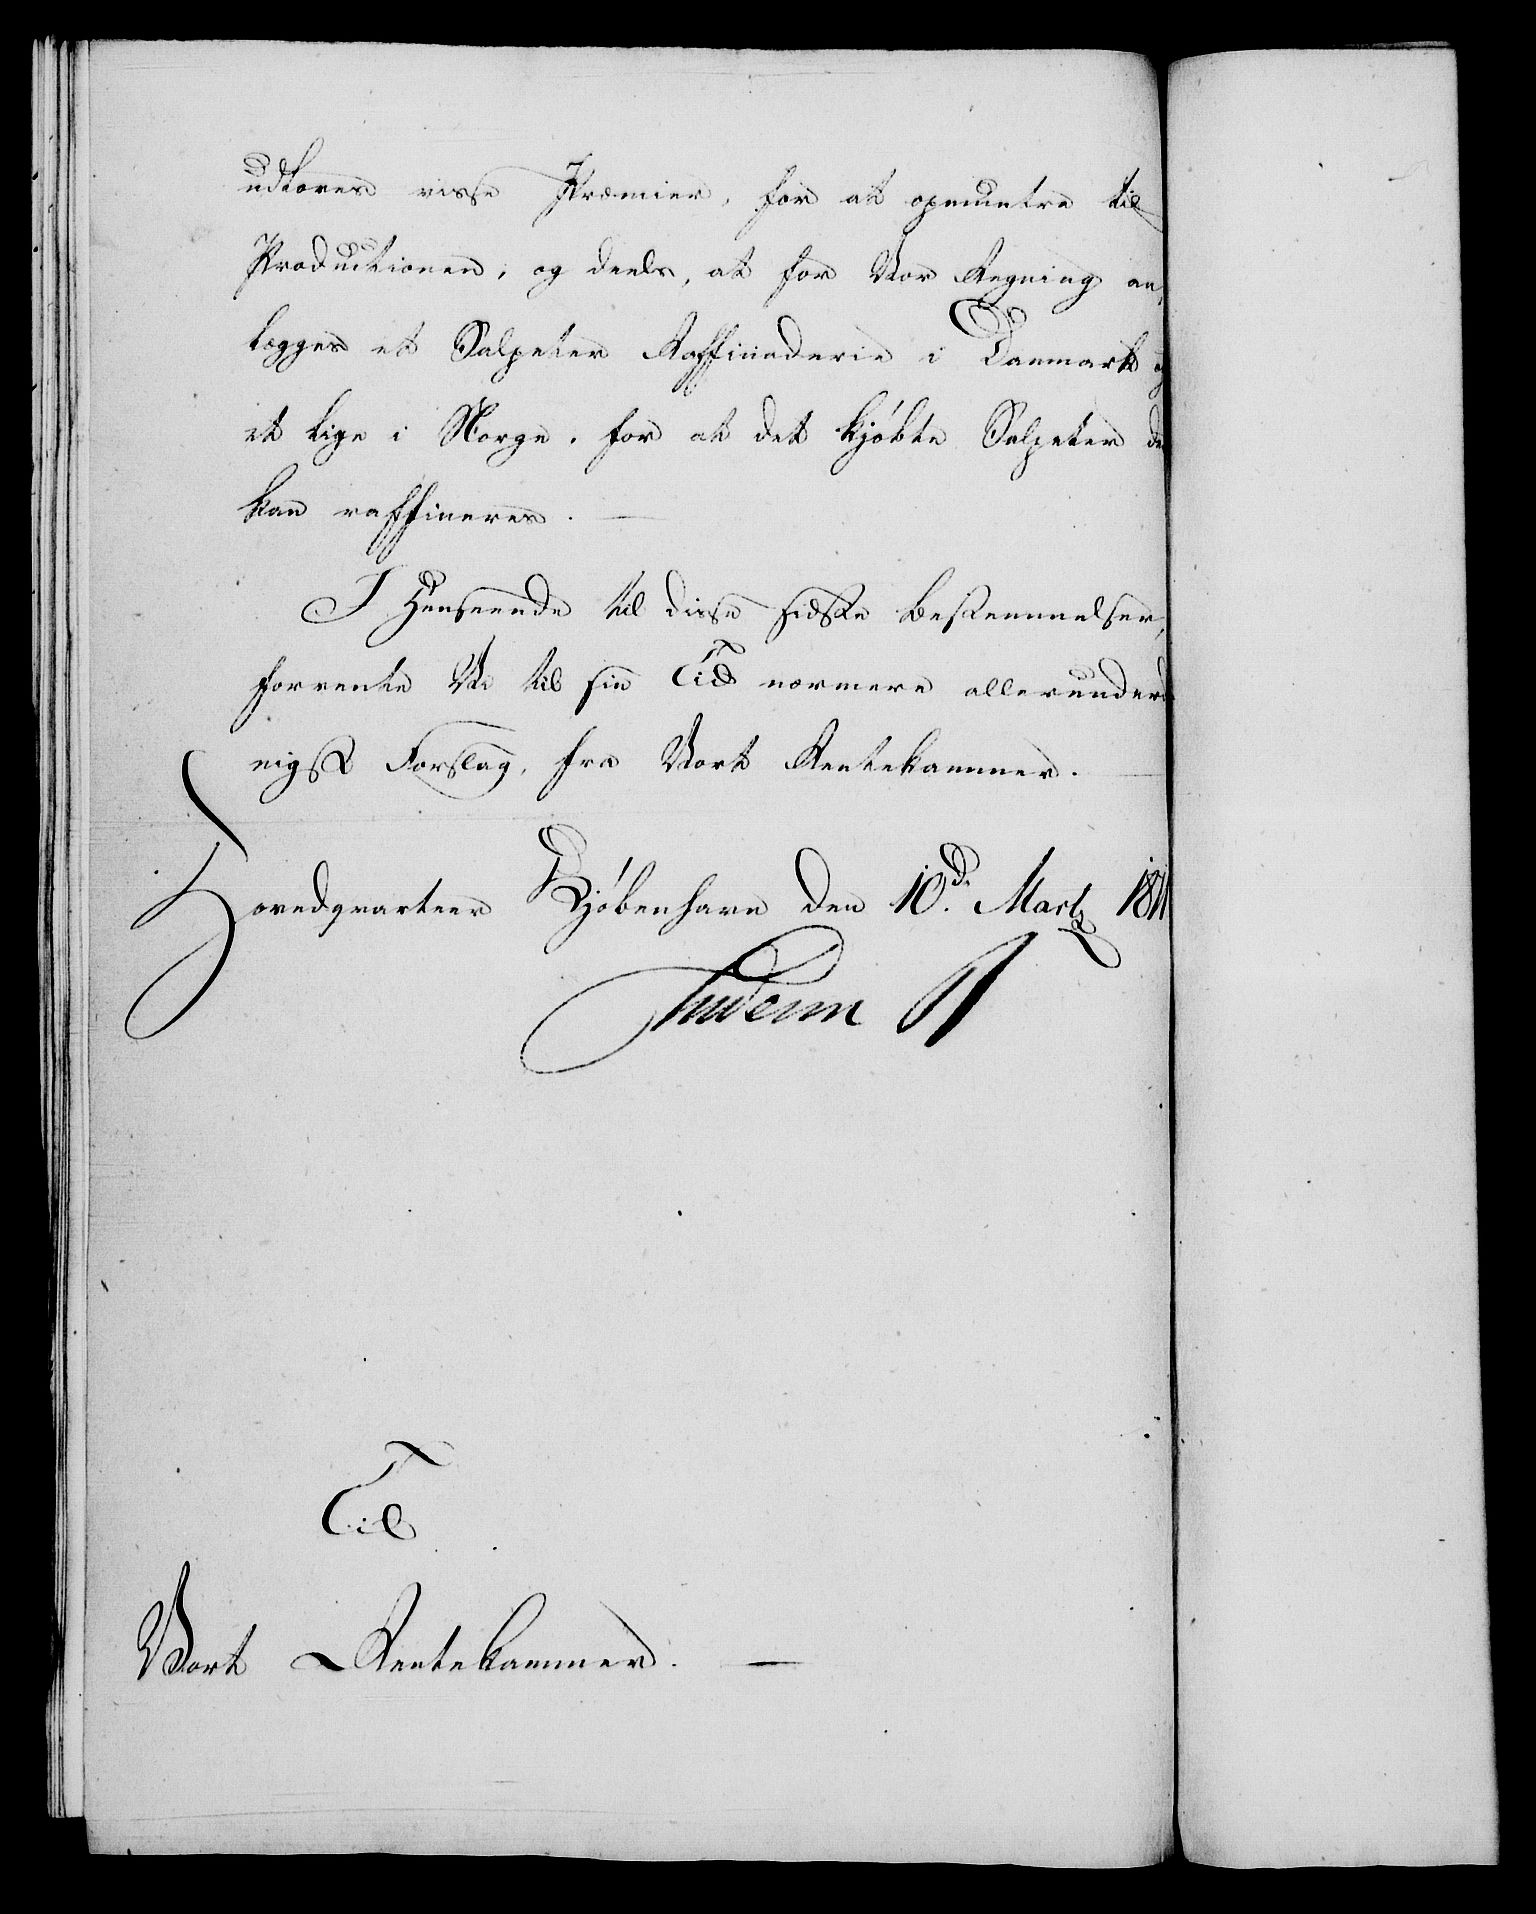 udloves visse Præmier, for at opmuntre til
Productionen, og deels, at for Vor Regning an¬
lægges et Salpeter Raffinaderie i Danmark og
et lige i Norge, for at det kjøbte Salpeter der
kan raffineres. —
I Henseende til disse sidste Bestemmelser,
forvente Vi til sin Tid nærmere allerunderd¬
nigst Forslag, fra Vort Rentekammer. —
Hovedqvarteer Kjøbenhavn den 10d. Martz 181
Frederik R
Til
Vort Rentekammer. —